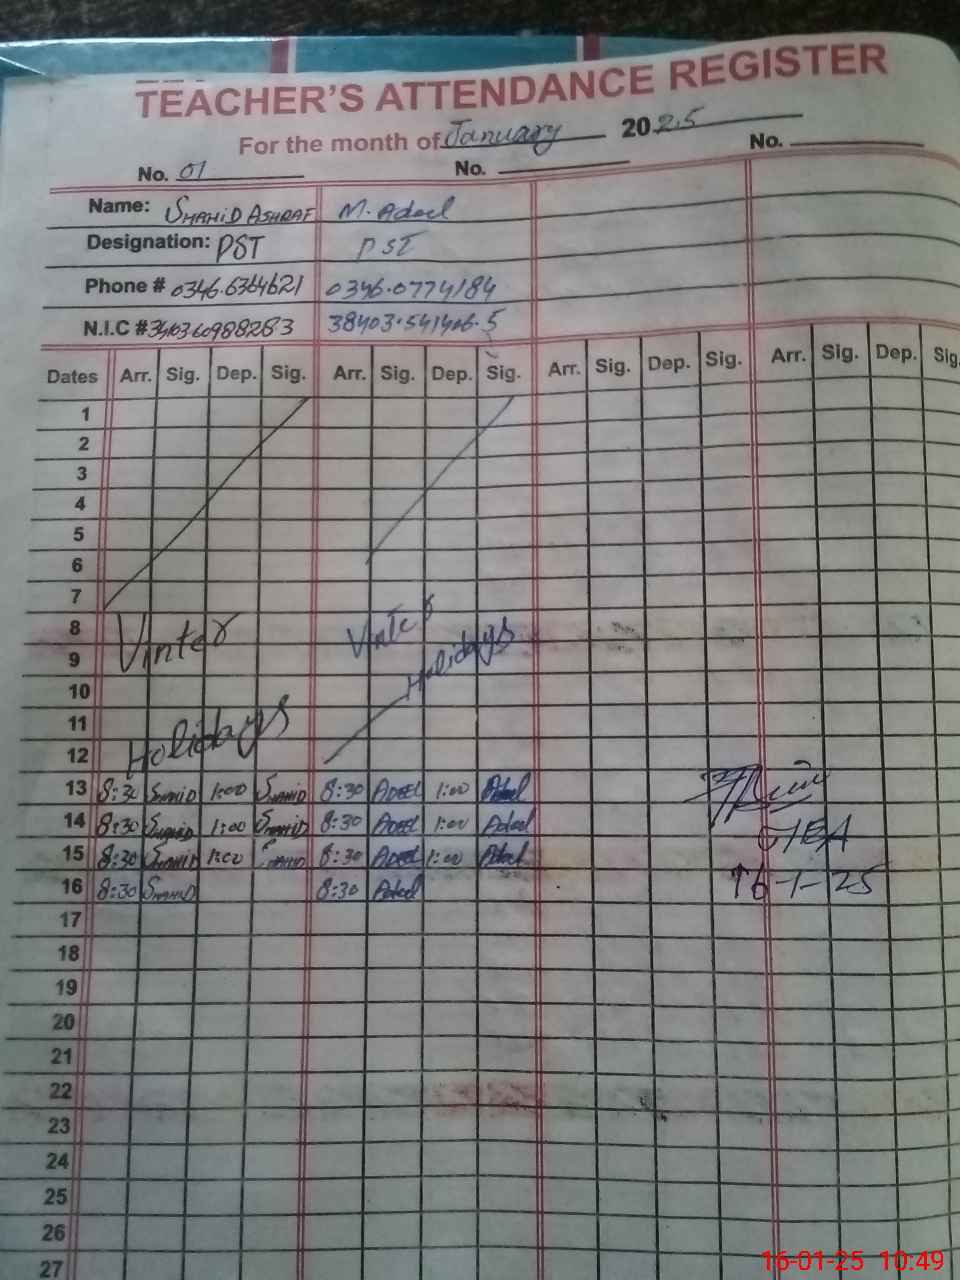 TEACHER'S ATTENDANCE REGISTER
For the month of January 2025
No. 01 No. No.
Name: SHAHID ASHRAF M. Adeel
Designation: PST PST
Phone # 0346.6364621 0346.0774184
N.I.C # 3840360988283 38403.541406.5
Dates Arr. Sig. Dep. Sig. Arr. Sig. Dep. Sig. Arr. Sig. Dep. Sig. Arr. Sig. Dep. Sig.
1
2
3
4
5
6
7
8 Vinter Vinter
9 Holidays
10
11 Holidays
12
13 8:30 SHAHID 1:00 SHAHID 8:30 ADEEL 1:00 Adeel
14 8:30 SHAHID 1:00 SHAHID 8:30 ADEEL 1:00 Adeel
15 8:30 SHAHID 1:00 SHAHID 8:30 ADEEL 1:00 Adeel
16 8:30 SHAHID 8:30 Adeel 16-1-25
17
18
19
20
21
22
23
24
25
26
27
16-01-25 10:49